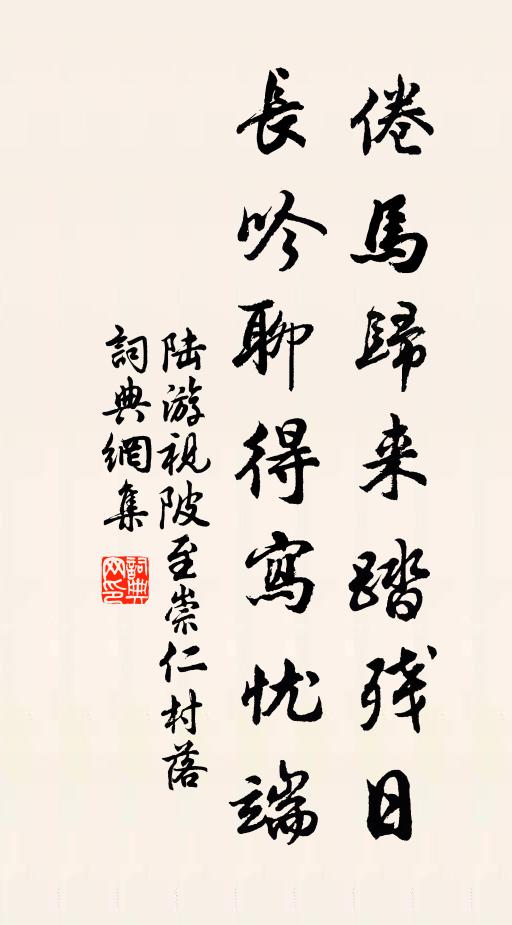 倦馬歸来踏残日
長吟聊得寫忧端
陆游視陂至崇仁村落
詞典網集
詞典网印